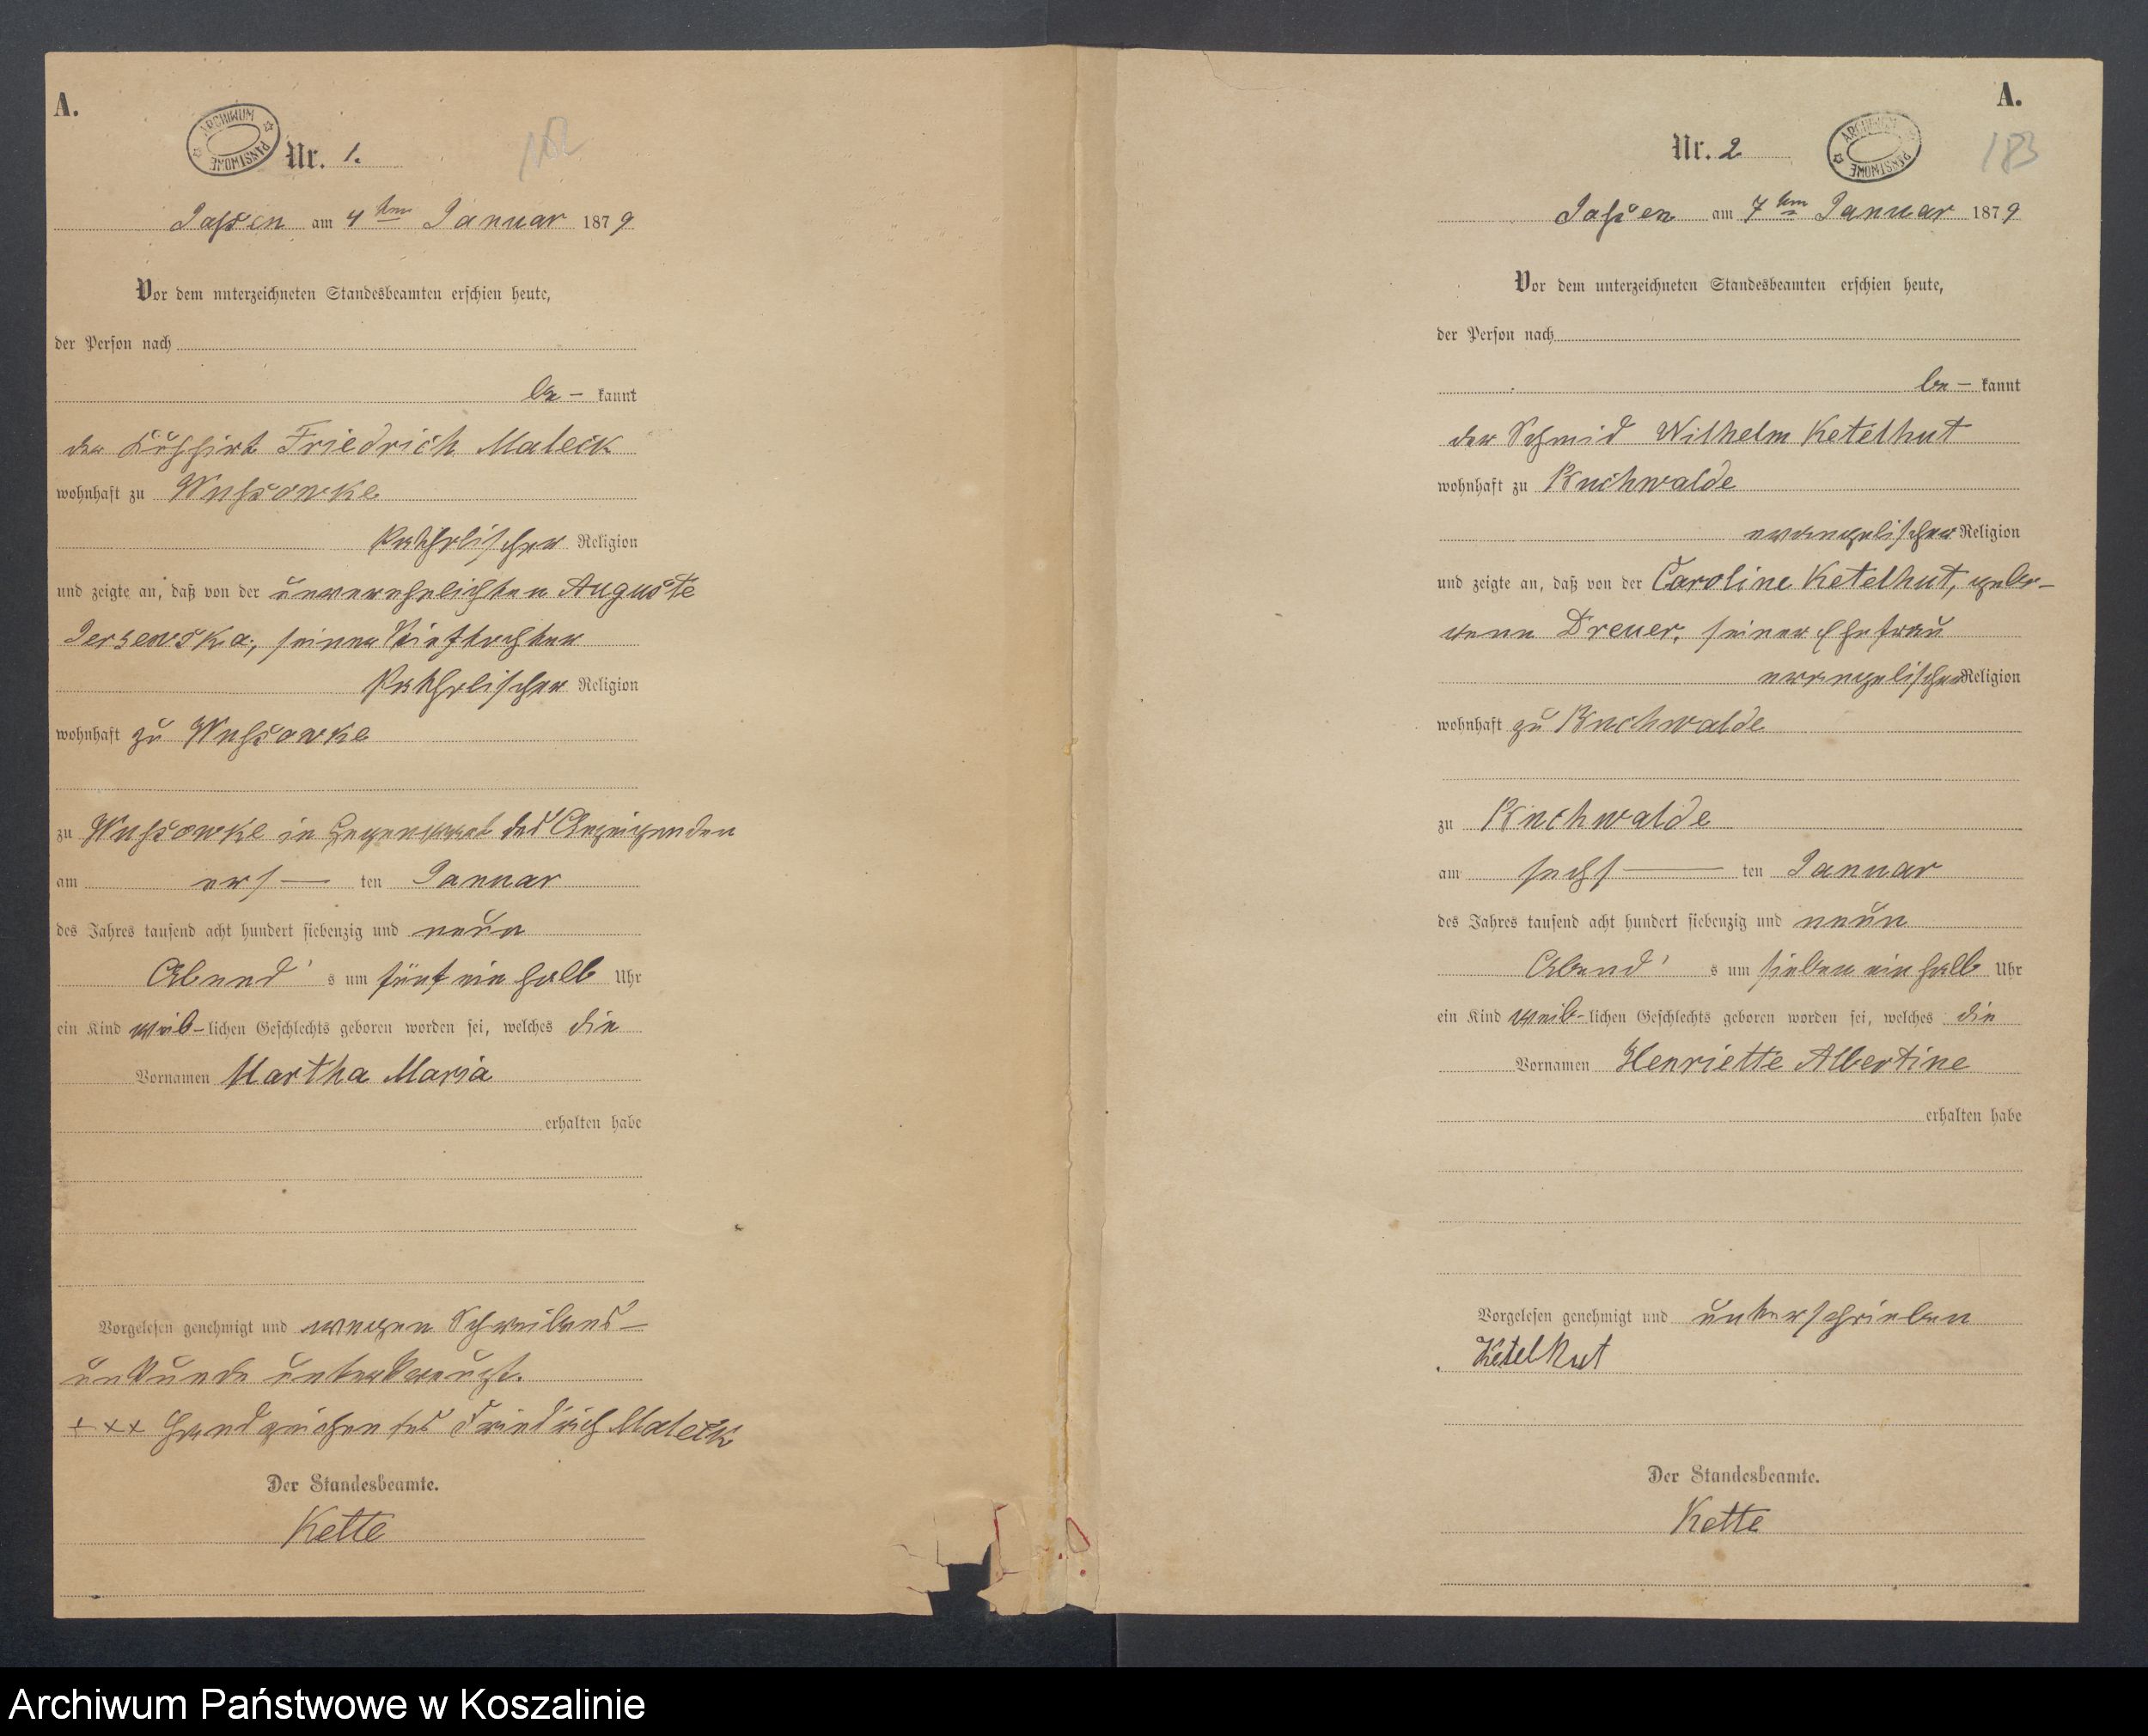 A.
ARCHIWUM PAŃSTWOWE
Nr. 1.
182
Jassen am 4ten Januar 1879
Vor dem unterzeichneten Standesbeamten erschien heute,
der Person nach
be- kannt
der Kuhhirt Friedrich Maleck
wohnhaft zu Wussowke
katholischer Religion
und zeigte an, daß von der unverehelichten Auguste
Jersewska, seiner Stieftochter
katholischer Religion
wohnhaft zu Wussowke
zu Wussowke in Gegenwart des Anzeigenden
am ers— ten Januar
des Jahres tausend acht hundert siebenzig und neun
Abend's um fünf ein halb Uhr
ein Kind weib-lichen Geschlechts geboren worden sei, welches die
Vornamen Martha Maria
erhalten habe
Vorgelesen genehmigt und wegen Schreibens-
unkunde unterkreuzt.
+++ Handzeichen des Friedrich Maleck
Der Standesbeamte.
Kette
A.
Nr. 2
ARCHIWUM PAŃSTWOWE
183
Jassen am 7ten Januar 1879
Vor dem unterzeichneten Standesbeamten erschien heute,
der Person nach
be- kannt
der Schmid Wilhelm Ketelhut
wohnhaft zu Buchwalde
evangelischer Religion
und zeigte an, daß von der Caroline Ketelhut, gebo-
rene Dreuer, seiner Ehefrau
evangelischer Religion
wohnhaft zu Buchwalde
zu Buchwalde
am sechs— ten Januar
des Jahres tausend acht hundert siebenzig und neun
Abend's um sieben ein halb Uhr
ein Kind weib-lichen Geschlechts geboren worden sei, welches die
Vornamen Henriette Albertine
erhalten habe
Vorgelesen genehmigt und unterschrieben
Ketelhut
Der Standesbeamte.
Kette
Archiwum Państwowe w Koszalinie